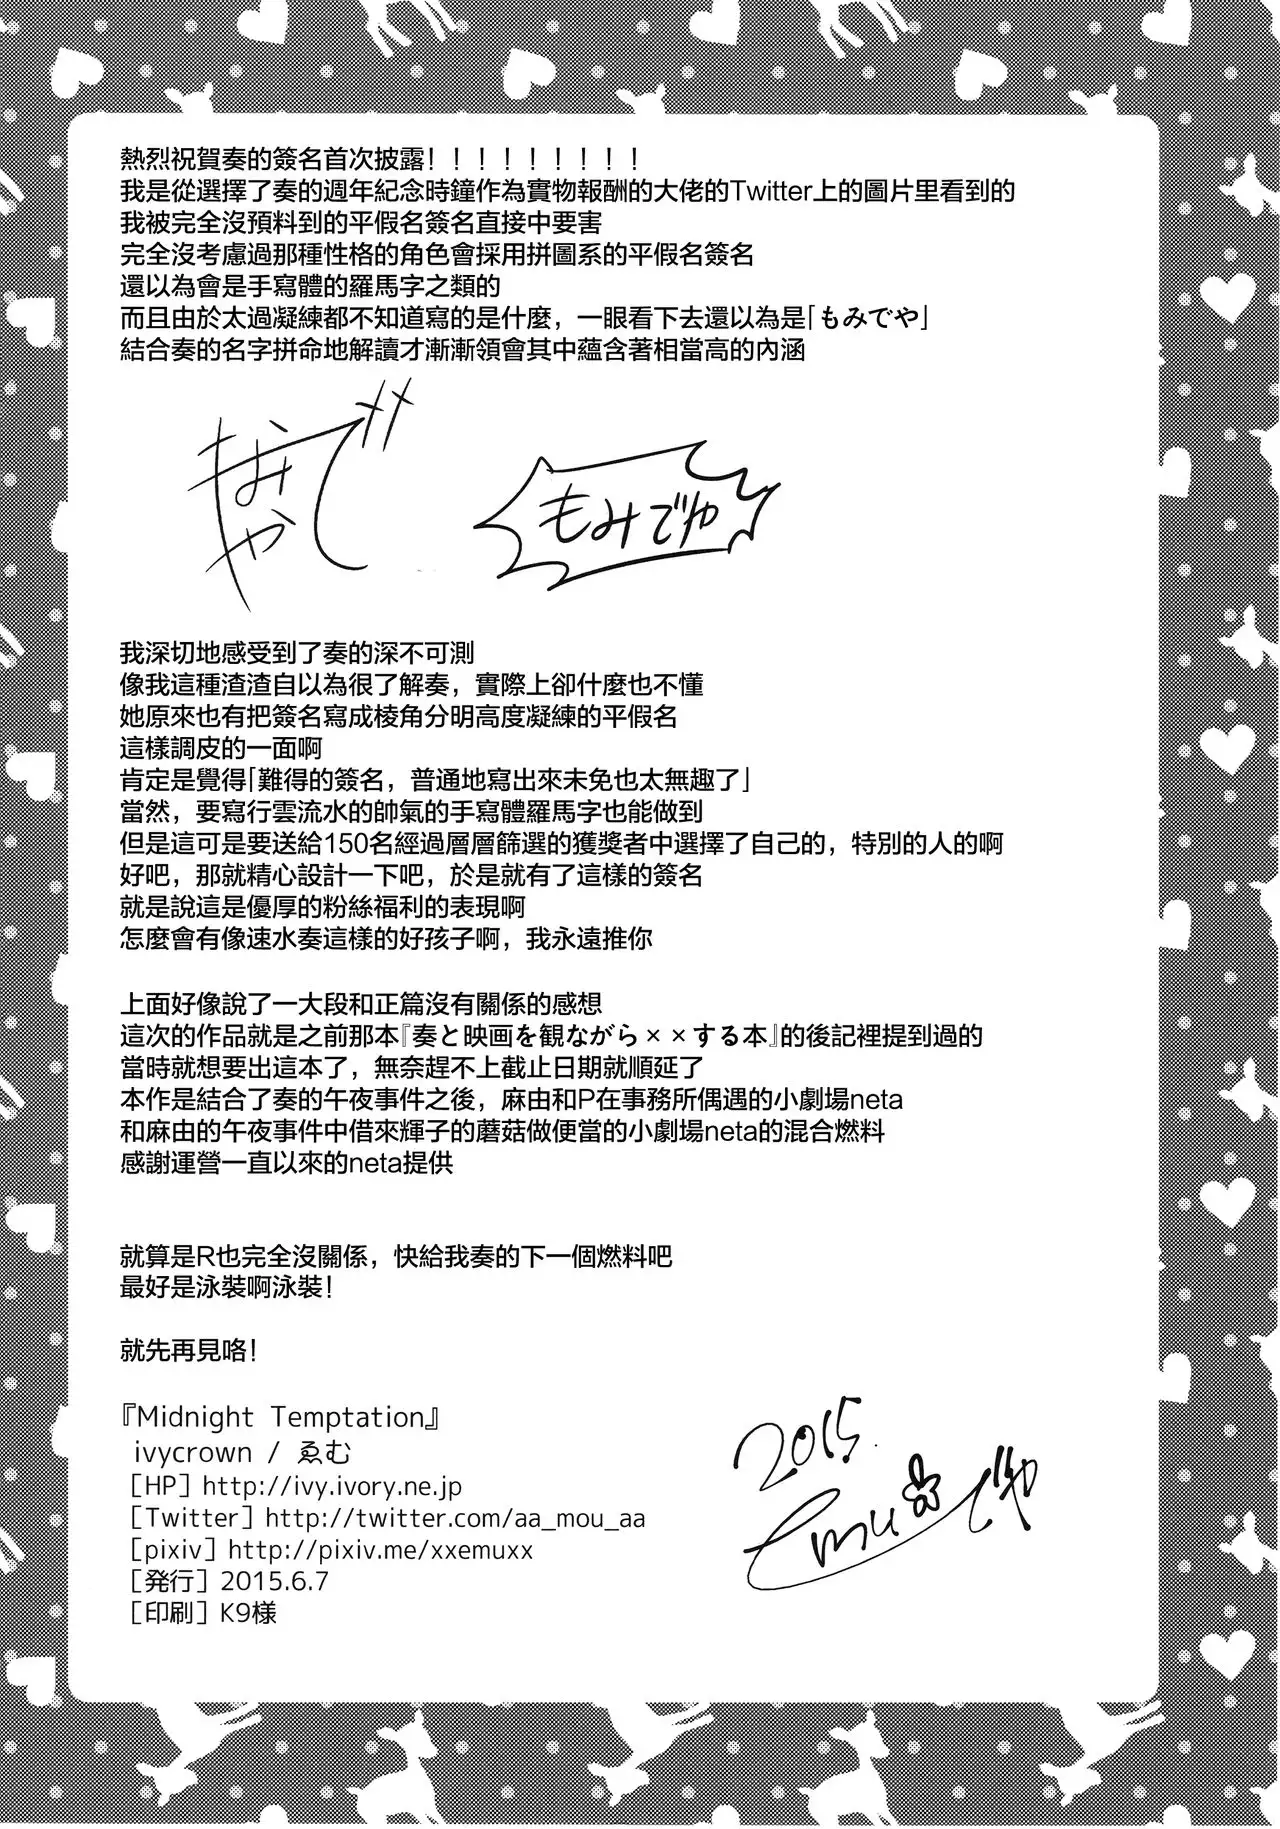 熱烈祝賀奏的簽名首次披露！！！！！！！！！
我是從選擇了奏的週年紀念時鐘作為實物報酬的大佬的Twitter上的圖片里看到的
我被完全沒預料到的平假名簽名直接中要害
完全沒考慮過那種性格的角色會採用拼圖系的平假名簽名
還以為會是手寫體的羅馬字之類的
而且由於太過凝練都不知道寫的是什麼，一眼看下去還以為是「もみでや」
結合奏的名字拼命地解讀才漸漸領會其中蘊含著相當高的內涵
もみでや
我深切地感受到了奏的深不可測
像我這種渣渣自以為很了解奏，實際上卻什麼也不懂
她原來也有把簽名寫成棱角分明高度凝練的平假名
這樣調皮的一面啊
肯定是覺得「難得的簽名，普通地寫出來未免也太無趣了」
當然，要寫行雲流水的帥氣的手寫體羅馬字也能做到
但是這可是要送給150名經過層層篩選的獲獎者中選擇了自己的，特別的人的啊
好吧，那就精心設計一下吧，於是就有了這樣的簽名
就是說這是優厚的粉絲福利的表現啊
怎麼會有像速水奏這樣的好孩子啊，我永遠推你
上面好像說了一大段和正篇沒有關係的感想
這次的作品就是之前那本『奏と映画を観ながら××する本』的後記裡提到過的
當時就想要出這本了，無奈趕不上截止日期就順延了
本作是結合了奏的午夜事件之後，麻由和P在事務所偶遇的小劇場neta
和麻由的午夜事件中借來輝子的蘑菇做便當的小劇場neta的混合燃料
感謝運營一直以來的neta提供
就算是R也完全沒關係，快給我奏的下一個燃料吧
最好是泳裝啊泳裝！
就先再見咯！
『Midnight Temptation』
ivycrown / ゑむ
[HP] http://ivy.ivory.ne.jp
[Twitter] http://twitter.com/aa_mou_aa
[pixiv] http://pixiv.me/xxemuxx
[発行] 2015.6.7
[印刷] K9様
2015.
Emu